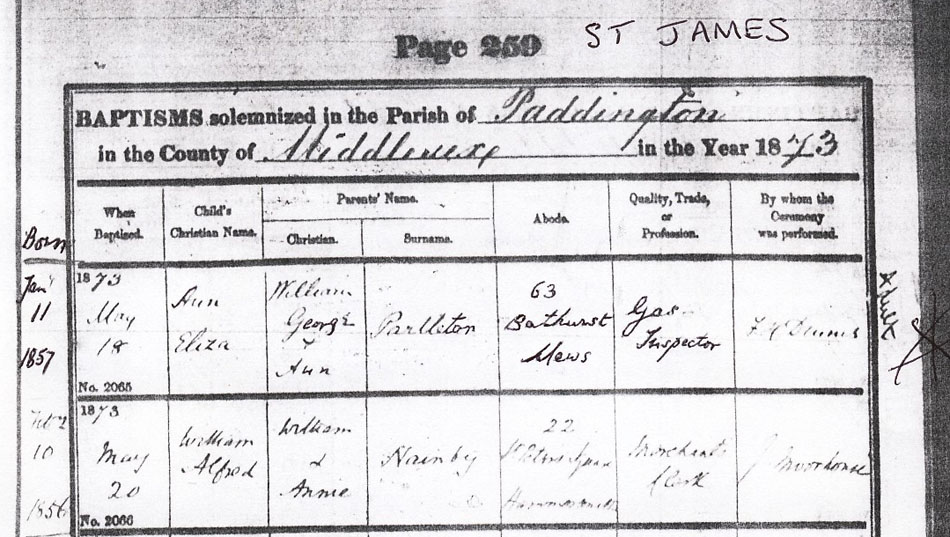 Page 259 ST JAMES
BAPTISMS solemnized in the Parish of Paddington
in the County of Middlesex in the Year 1873
When Baptized.
Child's Christian Name.
Parents' Name.
Christian.
Surname.
Abode.
Quality, Trade, or Profession.
By whom the Ceremony was performed.
Born
Jany
11
1857
1873
May
18
No. 2065
Ann
Eliza
William
George
&
Ann
63
Bathurst
Mews
Gas
Inspector
Adult
10
1856
1873
May
20
No. 2066
William
Alfred
William
&
Annie
22
Hammersmith
Merchants
Clerk
J Moorhouse